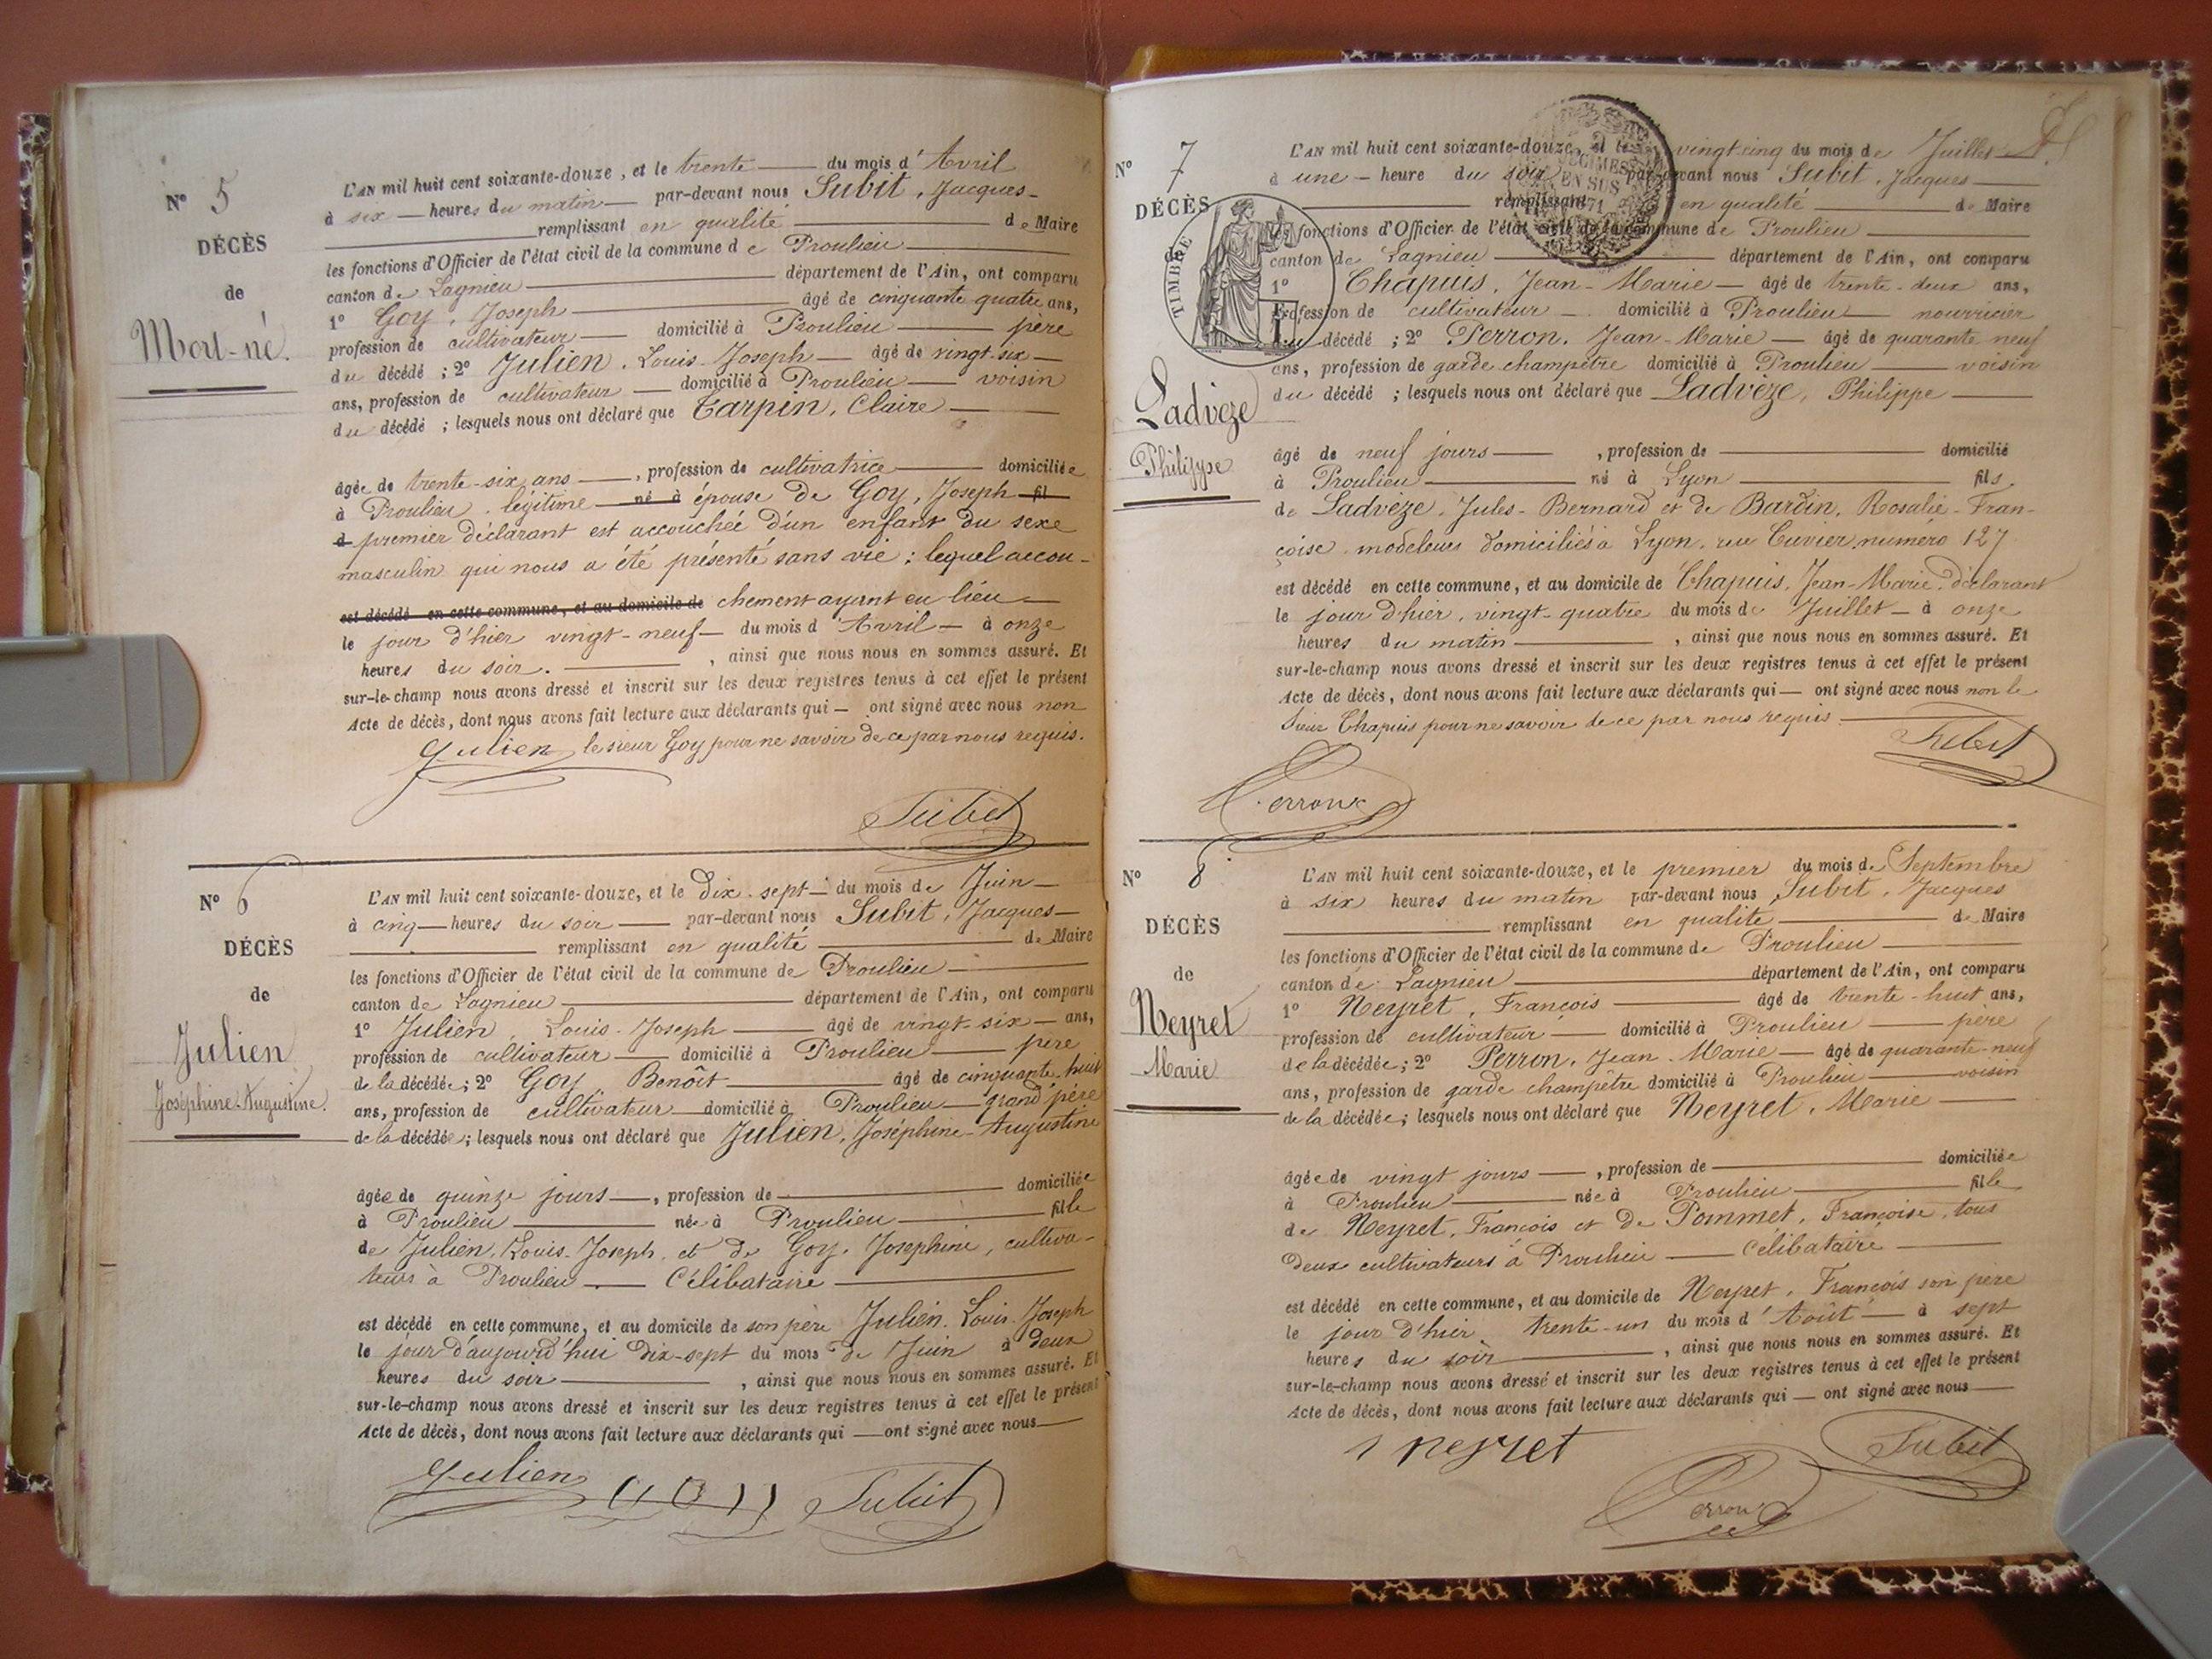 N° 5
DÉCÈS
de
Mort-né.
L'AN mil huit cent soixante-douze, et le trente du mois d'Avril
à six heures du matin par-devant nous Subit, Jacques
remplissant en qualité de Maire
les fonctions d'Officier de l'état civil de la commune de Proulieu
canton de Lagnieu département de l'Ain, ont comparu
1° Goy, Joseph âgé de cinquante quatre ans,
profession de cultivateur domicilié à Proulieu père
du décédé ; 2° Julien, Louis Joseph âgé de vingt-six
ans, profession de cultivateur domicilié à Proulieu voisin
du décédé ; lesquels nous ont déclaré que Tarpin, Claire
âgée de trente-six ans, profession de cultivatrice domiciliée
à Proulieu, légitime né à épouse de Goy, Joseph fil
d premier déclarant est accouchée d'un enfant du sexe
masculin qui nous a été présenté sans vie ; lequel accou-
est décédé en cette commune, et au domicile de chement ayant eu lieu
le jour d'hier vingt-neuf du mois d'Avril à onze
heures du soir. , ainsi que nous nous en sommes assuré. Et
sur-le-champ nous avons dressé et inscrit sur les deux registres tenus à cet effet le présent
Acte de décès, dont nous avons fait lecture aux déclarants qui ont signé avec nous non
le sieur Goy pour ne savoir de ce par nous requis.
Julien
Subit
N° 6
DÉCÈS
de
Julien
Joséphine-Augustine.
L'AN mil huit cent soixante-douze, et le dix-sept du mois de Juin
à cinq heures du soir par-devant nous Subit, Jacques
remplissant en qualité de Maire
les fonctions d'Officier de l'état civil de la commune de Proulieu
canton de Lagnieu département de l'Ain, ont comparu
1° Julien, Louis-Joseph âgé de vingt-six ans,
profession de cultivateur domicilié à Proulieu père
de la décédée ; 2° Goy, Benôit âgé de cinquante-huit
ans, profession de cultivateur domicilié à Proulieu grand père
de la décédée ; lesquels nous ont déclaré que Julien, Joséphine-Augustine
âgée de quinze jours, profession de domiciliée
à Proulieu née à Proulieu fille
de Julien, Louis-Joseph, et de Goy, Josephine, cultiva-
teurs à Proulieu Célibataire
est décédé en cette commune, et au domicile de son père Julien, Louis Joseph
le jour d'aujourd'hui dix-sept du mois de Juin à deux
heures du soir , ainsi que nous nous en sommes assuré. Et
sur-le-champ nous avons dressé et inscrit sur les deux registres tenus à cet effet le présent
Acte de décès, dont nous avons fait lecture aux déclarants qui ont signé avec nous
Julien
Subit
N° 7
DÉCÈS
TIMBRE
Ladvèze
Philippe
L'AN mil huit cent soixante-douze, et le vingt-cinq du mois de Juillet
à une heure du soir par-devant nous Subit, Jacques
remplissant en qualité de Maire
les fonctions d'Officier de l'état civil de la commune de Proulieu
canton de Lagnieu département de l'Ain, ont comparu
1° Chapuis, Jean-Marie âgé de trente-deux ans,
profession de cultivateur domicilié à Proulieu nourricier
du décédé ; 2° Perron, Jean-Marie âgé de quarante neuf
ans, profession de garde champêtre domicilié à Proulieu voisin
du décédé ; lesquels nous ont déclaré que Ladvèze, Philippe
âgé de neuf jours , profession de domicilié
à Proulieu né à Lyon fils
de Ladvèze, Jules-Bernard et de Bardin, Rosalie-Fran-
çoise, modeleurs domiciliés à Lyon, rue Cuvier numéro 127
est décédé en cette commune, et au domicile de Chapuis, Jean-Marie, déclarant
le jour d'hier, vingt-quatre du mois de Juillet à onze
heures du matin , ainsi que nous nous en sommes assuré. Et
sur-le-champ nous avons dressé et inscrit sur les deux registres tenus à cet effet le présent
Acte de décès, dont nous avons fait lecture aux déclarants qui ont signé avec nous non le
sieur Chapuis pour ne savoir de ce par nous requis
Subit
Perroux
N° 8
DÉCÈS
de
Neyret
Marie
L'AN mil huit cent soixante-douze, et le premier du mois de Septembre
à six heures du matin par-devant nous Subit, Jacques
remplissant en qualité de Maire
les fonctions d'Officier de l'état civil de la commune de Proulieu
canton de Lagnieu département de l'Ain, ont comparu
1° Neyret, François âgé de trente-huit ans,
profession de cultivateur domicilié à Proulieu père
de la décédée ; 2° Perron, Jean-Marie âgé de quarante-neuf
ans, profession de garde champêtre domicilié à Proulieu voisin
de la décédée ; lesquels nous ont déclaré que Neyret, Marie
âgée de vingt jours , profession de domiciliée
à Proulieu née à Proulieu fille
de Neyret, François et de Pommet, Françoise, tous
deux cultivateurs à Proulieu Célibataire
est décédé en cette commune, et au domicile de Neyret, François son père
le jour d'hier, trente-un du mois d'Août à sept
heures du soir , ainsi que nous nous en sommes assuré. Et
sur-le-champ nous avons dressé et inscrit sur les deux registres tenus à cet effet le présent
Acte de décès, dont nous avons fait lecture aux déclarants qui ont signé avec nous
neyret
Subit
Perroux